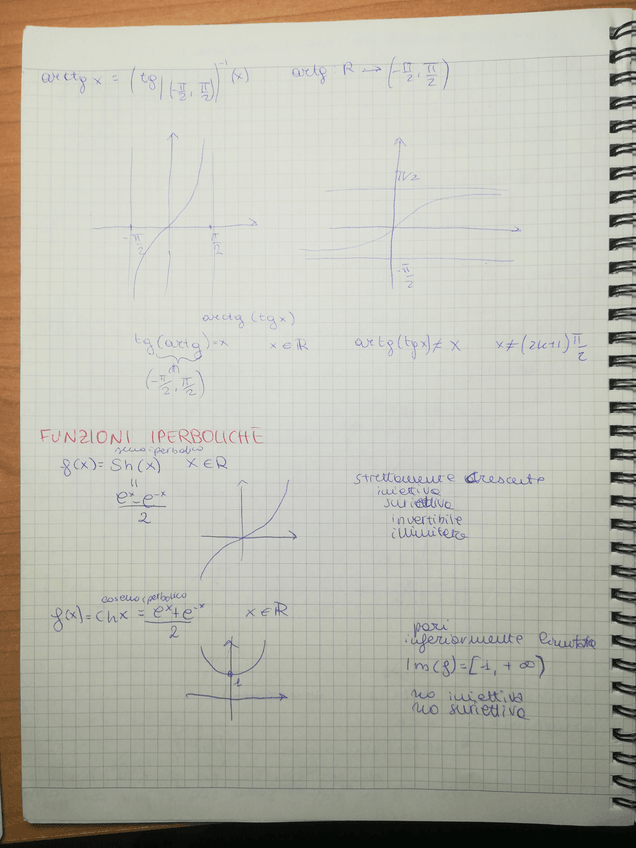 arctg x = (tg|(-π/2, π/2))⁻¹ (x)
artg R → (-π/2, π/2)
-π/2
π/2
π/2
-π/2
arctg (tg x)
tg (artg) = x x ∈ ℝ
(-π/2, π/2)
artg (tg x) ≠ x x ≠ (2k+1) π/2
FUNZIONI IPERBOLICHE
seno iperbolico
f(x) = Sh(x) x ∈ ℝ
=
eˣ - e⁻ˣ / 2
strettamente crescente
iniettiva
suriettiva
invertibile
illimitata
coseno iperbolico
f(x) = Ch x = eˣ + e⁻ˣ / 2 x ∈ ℝ
1
pari
inferiormente limitata
Im(f) = [1, +∞)
no iniettiva
no suriettiva